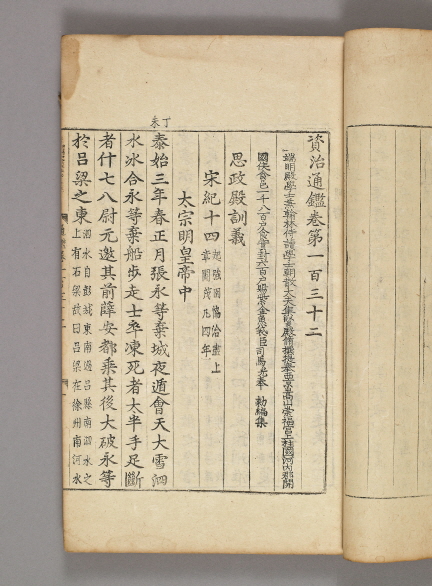 資治通鑑卷第一百三十二
端明殿學士兼翰林侍讀學士朝散大夫集賢殿修撰提擧西京嵩山崇福宮上柱國河內郡開
國侯食邑一千八百戶食實封六百戶賜紫金魚袋臣司馬光奉 勅編集
思政殿訓義
宋紀十四 起強圉協洽盡上章閹茂凡四年
太宗明皇帝中
丁未
泰始三年春正月張永等棄城夜遁會天大雪泗
水冰合永等棄船步走士卒凍死者太半手足斷
者什七八尉元邀其前薛安都乘其後大破永等
於呂梁之東 泗水自彭城東南過呂縣南泗水之上有石梁故曰呂梁在徐州南河水